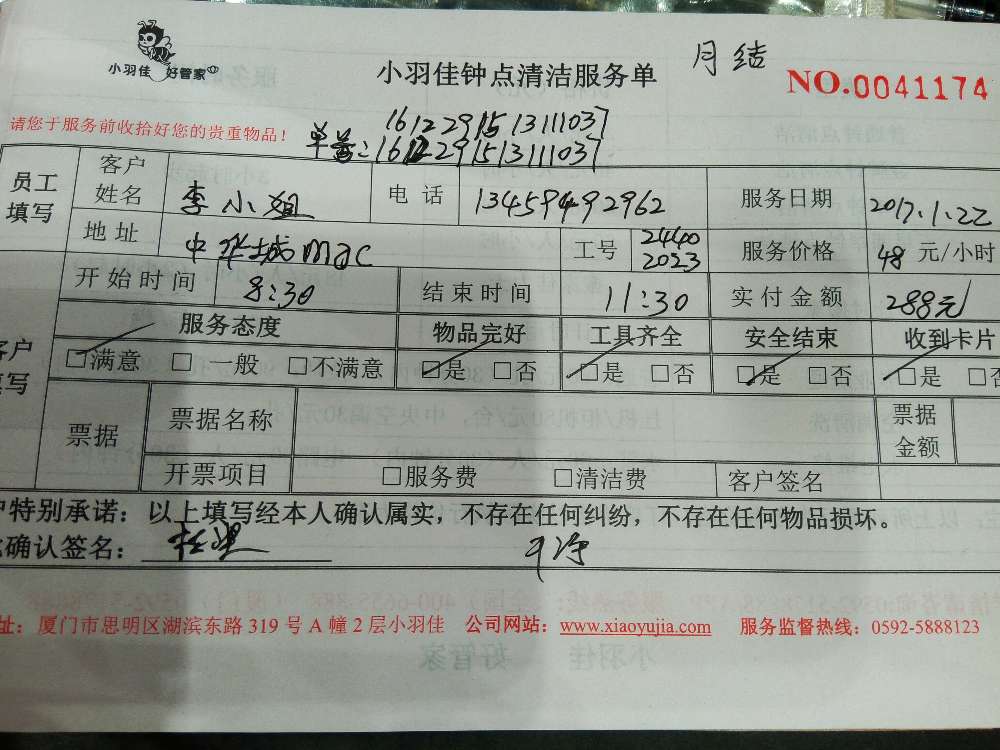 小羽佳 好管家
小羽佳钟点清洁服务单 月结
NO.0041174
请您于服务前收拾好您的贵重物品！
161229151311037
单号：161229151311037
员工填写 客户姓名 李小姐 电话 13459492962 服务日期 2017.1.22
地址 中华城mac 工号 2440 2023 服务价格 48 元/小时
开始时间 8:30 结束时间 11:30 实付金额 288元
服务态度 物品完好 工具齐全 安全结束 收到卡片
□满意 □一般 □不满意 □是 □否 □是 □否 □是 □否 □是 □否
票据 票据名称 票据金额
开票项目 □服务费 □清洁费 客户签名
特别承诺：以上填写经本人确认属实，不存在任何纠纷，不存在任何物品损坏。
确认签名： 干净
址：厦门市思明区湖滨东路 319 号 A 幢 2 层小羽佳 公司网站：www.xiaoyujia.com 服务监督热线：0592-5888123